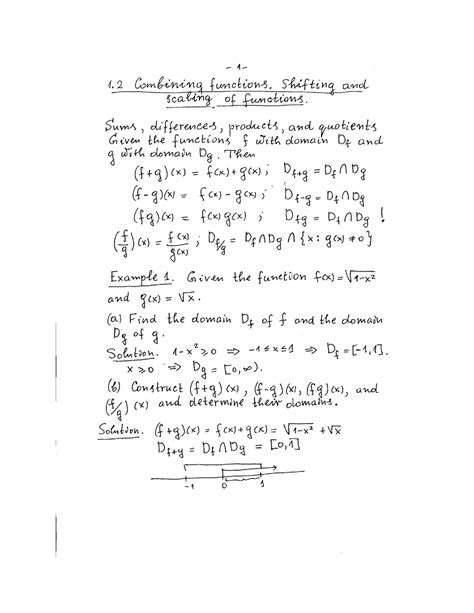 - 1 -
1.2 Combining functions. Shifting and
scaling of functions.
Sums, differences, products, and quotients
Given the functions f with domain Df and
g with domain Dg. Then
(f+g)(x) = f(x)+g(x) ; Df+g = Df ∩ Dg
(f-g)(x) = f(x)-g(x) ; Df-g = Df ∩ Dg
(fg)(x) = f(x)g(x) ; Dfg = Df ∩ Dg !
(f/g)(x) = f(x)/g(x) ; Df/g = Df ∩ Dg ∩ {x: g(x) ≠ 0}
Example 1. Given the function f(x) = √1-x²
and g(x) = √x.
(a) Find the domain Df of f and the domain
Dg of g.
Solution. 1-x² ⩾ 0 ⇒ -1 ⩽ x ⩽ 1 ⇒ Df = [-1,1].
x ⩾ 0 ⇒ Dg = [0,∞).
(b) Construct (f+g)(x), (f-g)(x), (fg)(x), and
(f/g)(x) and determine their domains.
Solution. (f+g)(x) = f(x)+g(x) = √1-x² + √x
Df+g = Df ∩ Dg = [0,1]
-1 0 1